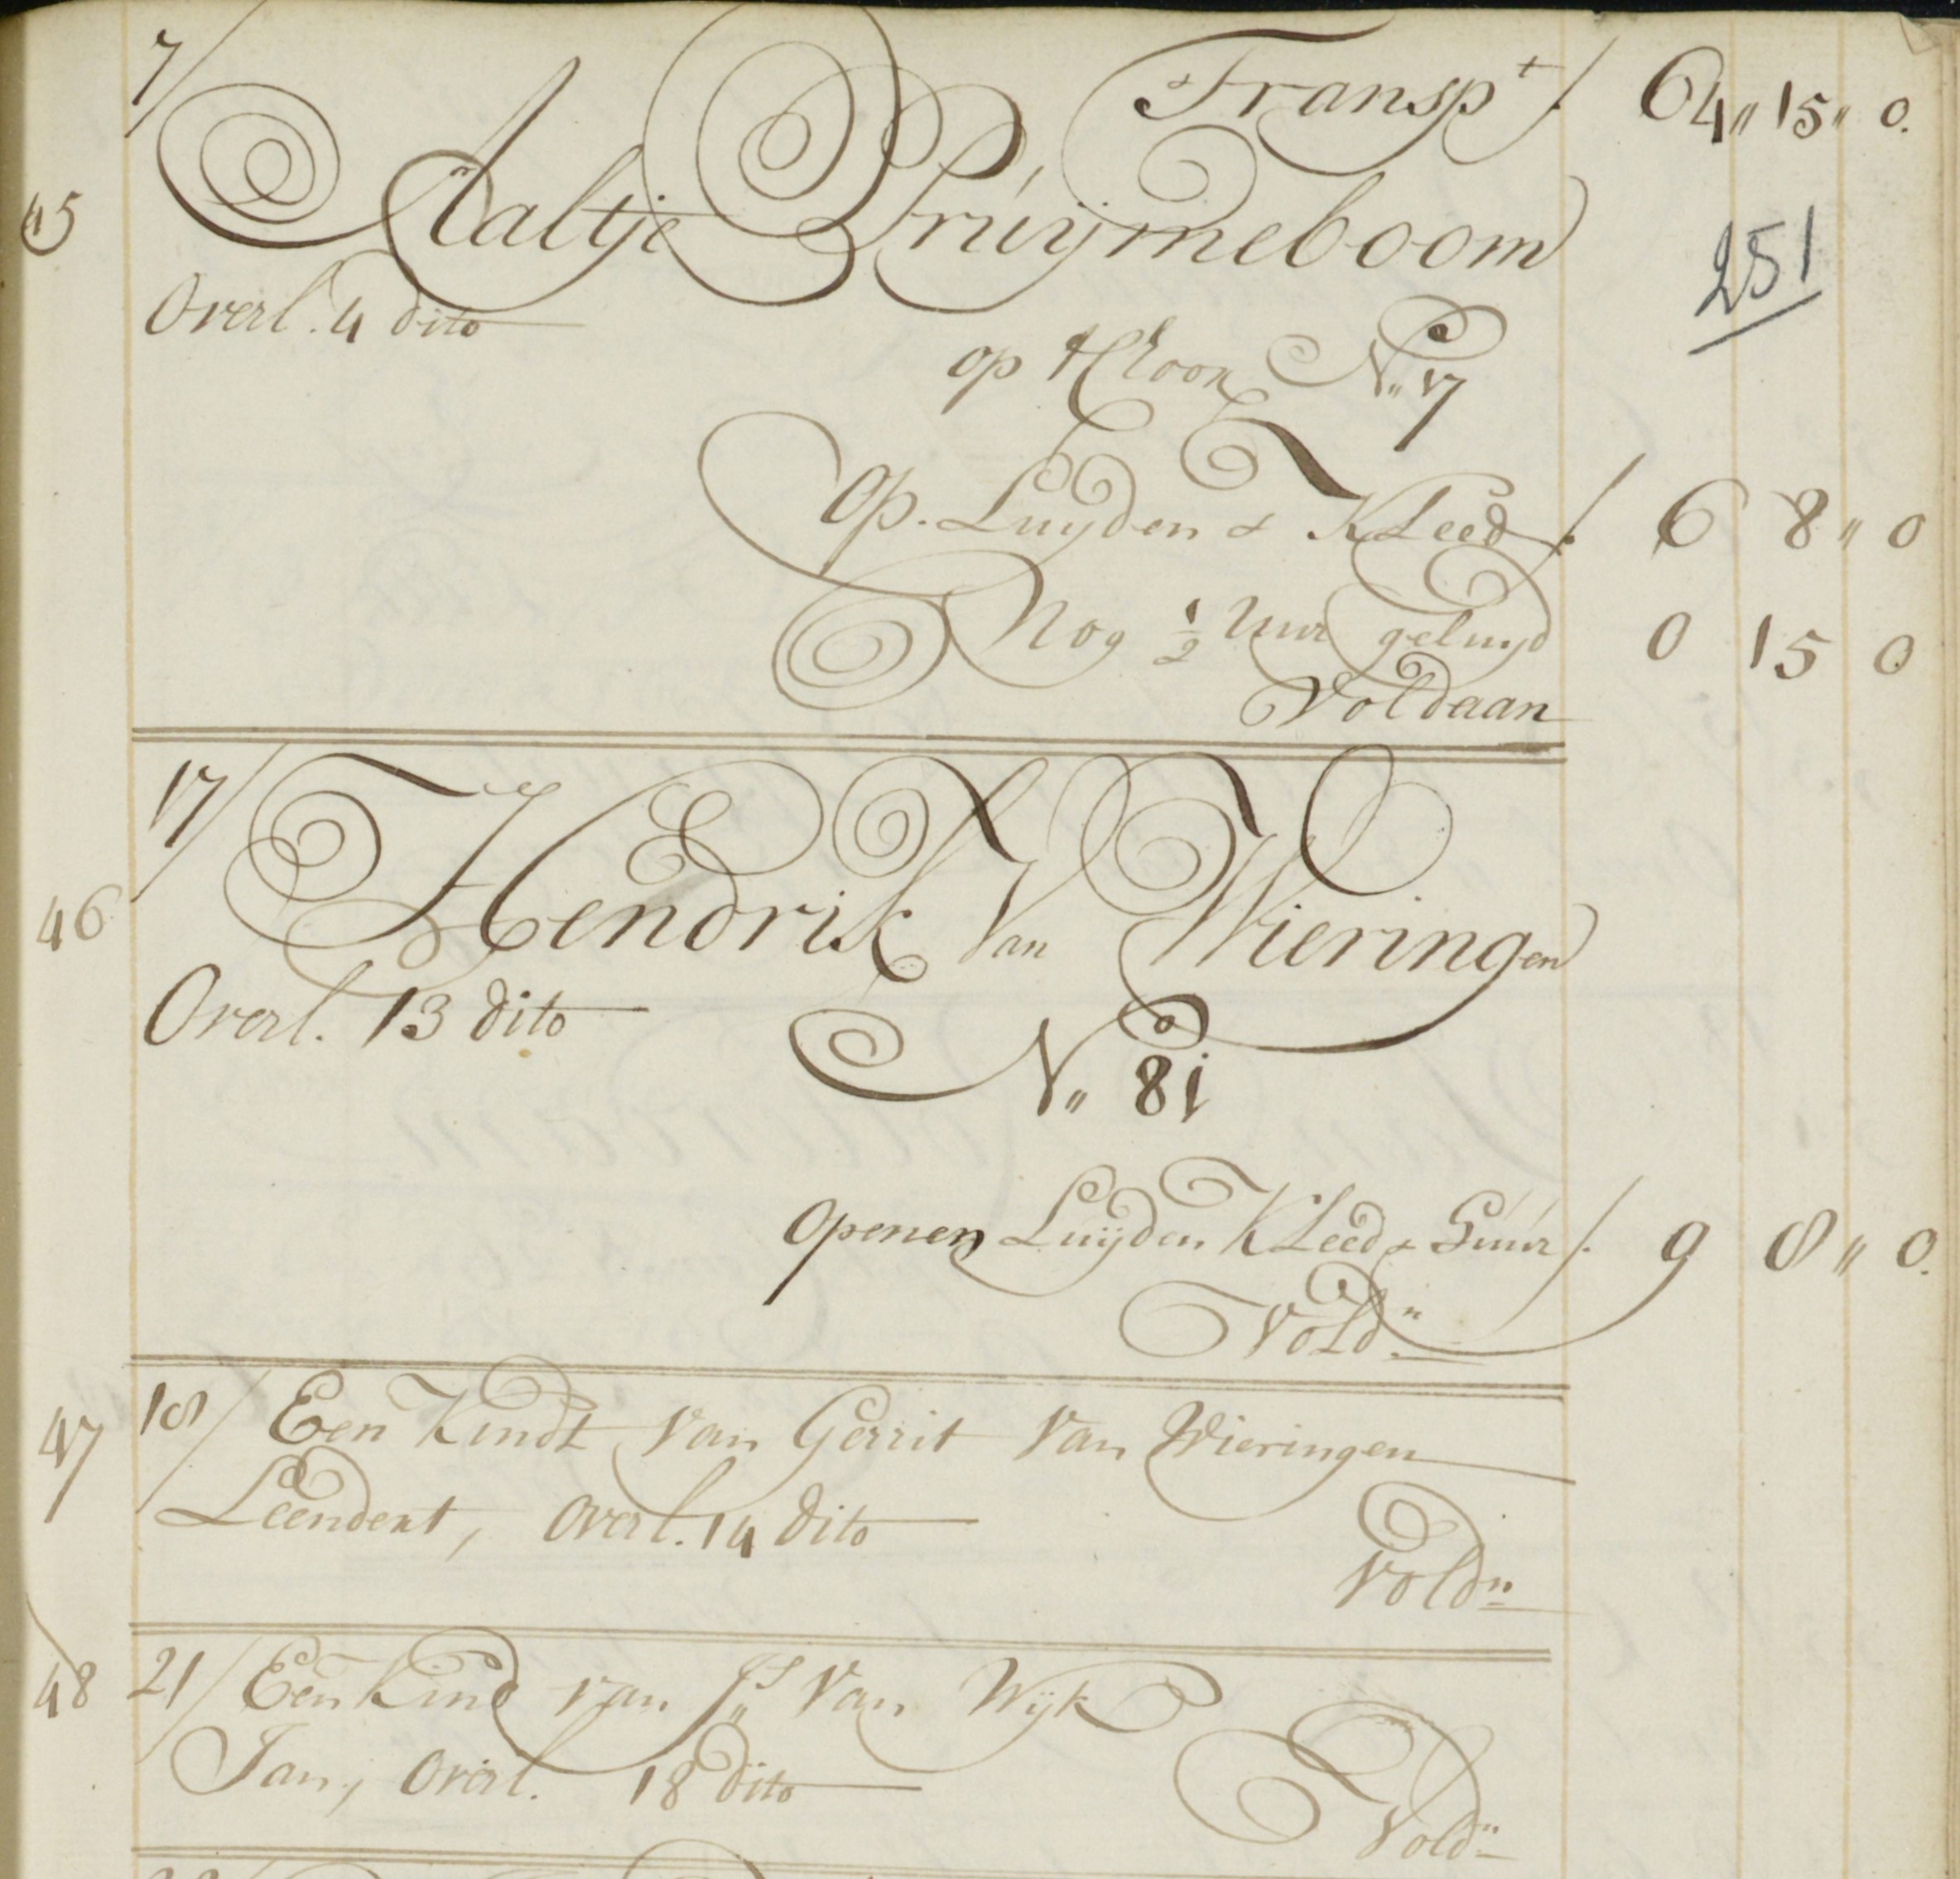 Transpt / 64 „ 15 „ 0.
7/
45 Aaltje Pruijmeboom
251
Overl. 4 dito
op t Choor N„ 17
Op. Luyden & KLeed / 6 8 „ 0
Nog 1/2 Uur geluyd 0 15 0
Voldaan
17/
46 Hendrik Van Wieringen
Overl. 13 dito
N„ 81
Openen Luijden KLeed & /. 9 8 „ 0.
Voldn
47 18/ Een Kindt Van Gerrit Van Wieringen
Leendert, Overl. 14 dito
Voldn
48 21/ Een Kind van Js Van Wijk
Jan, Overl. 18 dito
Voldn